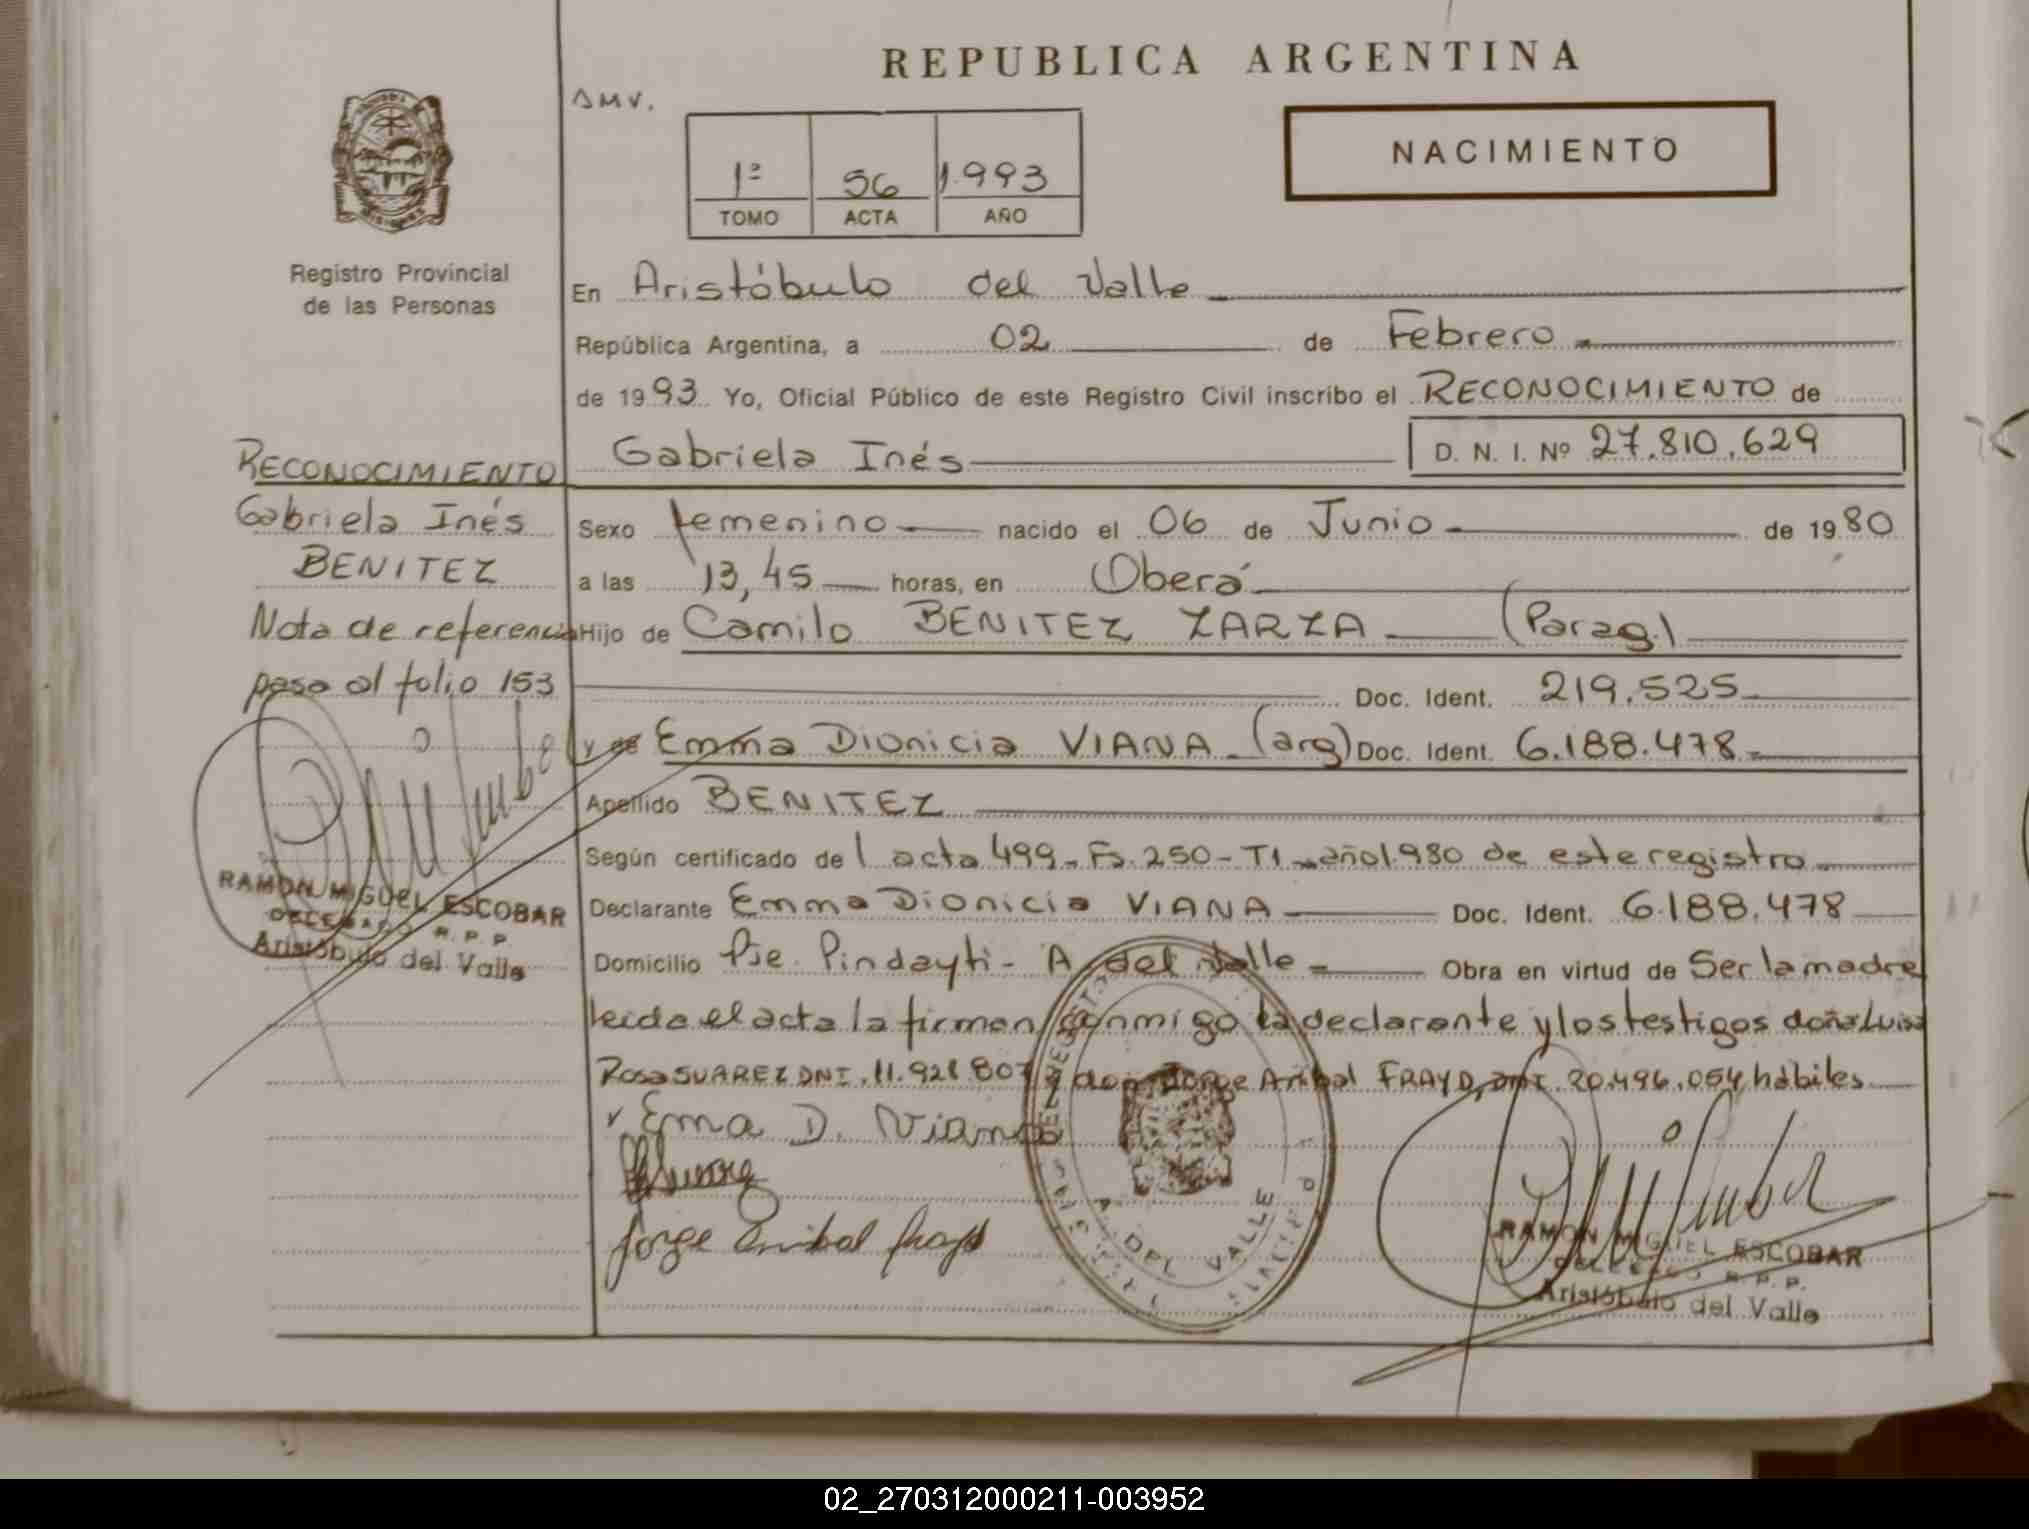 REPUBLICA ARGENTINA
DMV.
NACIMIENTO
1º 56 1.993
TOMO ACTA AÑO
Registro Provincial
de las Personas
En Aristóbulo del Valle
República Argentina, a 02 de Febrero
de 1993 Yo, Oficial Público de este Registro Civil inscribo el RECONOCIMIENTO de
Gabriela Inés D. N. I. Nº 27.810.629
RECONOCIMIENTO
Gabriela Inés
BENITEZ
Nota de referencia
pasa al folio 153
RAMON MIGUEL ESCOBAR
DELEGADO R.P.P.
Aristóbulo del Valle
Sexo femenino nacido el 06 de Junio de 1980
a las 13,45 horas, en Oberá
Hijo de Camilo BENITEZ ZARZA (Parag.)
Doc. Ident. 219.525
y de Emma Dionicia VIANA (arg) Doc. Ident. 6.188.478
Apellido BENITEZ
Según certificado de l acta 499-Fs.250-T1-año1.980 de este registro
Declarante Emma Dionicia VIANA Doc. Ident. 6.188.478
Domicilio Pje. Pindayti - A. del Valle Obra en virtud de Ser la madre
leida el acta la firman conmigo la declarante y los testigos doña Luisa
Rosa SUAREZ DNI. 11.921.807 y don Jorge Anibal FRAYD, DNI. 20.496.054 hábiles
Ema D. Viana
Jorge Anibal Frayd
A. DEL VALLE
RAMON MIGUEL ESCOBAR
DELEGADO R.P.P.
Aristóbulo del Valle
02_270312000211-003952